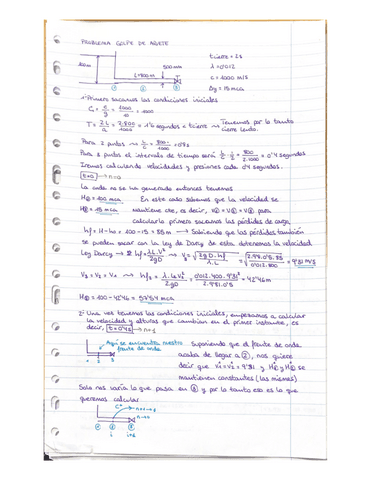 PROBLEMA GOLPE DE ARIETE
100m
500mm
L=800m
1 2 3
tcierre = 2s
λ = 0'012
c = 1000 m/s
Δy = 15 mca
1- Primero sacamos las condiciones iniciales
Ca = c/g = 1000/10 = 1000
T = 2·L/a = 2·800/1000 = 1'6 segundos < tcierre → Tenemos por lo tanto cierre lento.
Para 2 puntos → L/c = 800/1000 = 0'8s
Para 3 puntos el intervalo de tiempo será L/c · 1/2 = 800/2·1000 = 0'4 segundos
Iremos calculando velocidades y presiones cada 0'4 segundos.
t=0 → n=0
La onda no se ha generado entonces tenemos
H① = 100 mca
En este caso sabemos que la velocidad se
H③ = 15 mca
mantiene cte, es decir, v① = v② = v③ para
calcularla primero sacamos las pérdidas de carga,
hf = H - h = 100 - 15 = 85 m → Sabiendo que las pérdidas también
se pueden sacar con la ley de Darcy de esta obtenemos la velocidad
Ley Darcy → hf = λ·L·V²/2gD → V3 = √(2gD·hf/λ·L) = √(2·9'81·0'5·85/0'012·800) = 9'31 m/s
V3 = V2 = V1 → hf2 = λ·L2·V2²/2gD = 0'012·400·9'31²/2·9'81·0'5 = 42'46m
H② = 100 - 42'46 = 57'54 mca
2- Una vez tenemos las condiciones iniciales, empezamos a calcular
la velocidad y alturas que cambian en el primer instante, es
decir, t=0'4s → n=1
Aquí se encuentra nuestro frente de onda
1 2 3
Suponiendo que el frente de onda
acaba de llegar a ②, nos quiere
decir que V1 = V2 = 9'31 y H① y H② se
mantienen constantes (las mismas)
Solo nos varía lo que pasa en ③ y por lo tanto eso es lo que
queremos calcular
C+
1 2 3
i i+1